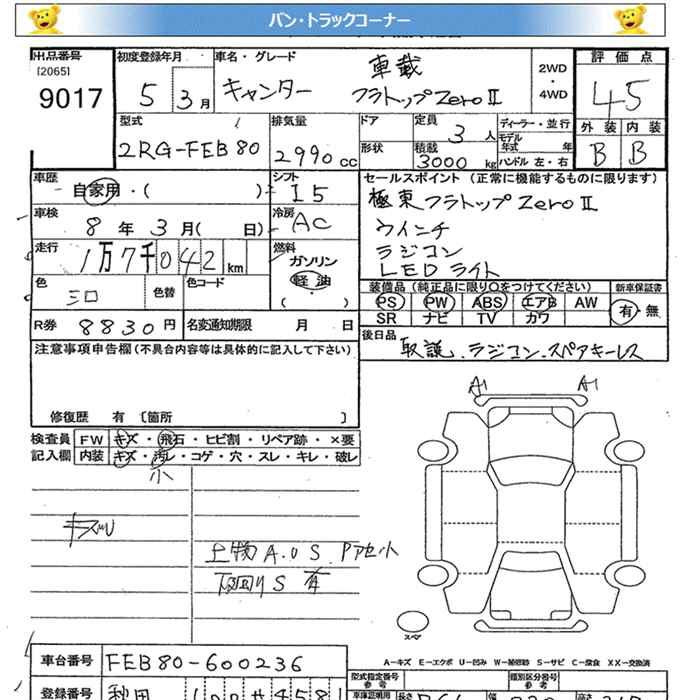 バン・トラックコーナー
出品番号
[2065]
9017
初度登録年月
5 3月
車名・グレード
車載
キャンター フラトップZeroⅡ
2WD
・
4WD
評価点
4.5
外装 内装
B B
型式
2RG-FEB80
排気量
2990cc
ドア
形状
定員
3人
積載
3000kg
ディーラー・並行
モデル年式 年
ハンドル 左・右
車歴
自家用・( )
シフト
I5
車検
8年3月( 日)
冷房
AC
走行
1万7千042km
燃料
ガソリン
軽油
・
( )
色
シロ
色替
色コード
R券 8830円
名変通知期限 月 日
セールスポイント(正常に機能するものに限ります)
極東フラトップZeroⅡ
ウインチ
ラジコン
LEDライト
装備品(純正品に限り○をつけてください)
PS PW ABS エアB AW
SR ナビ TV カワ
新車保証書
有・無
後日品
取説、ラジコン、スペアキーレス
注意事項申告欄(不具合内容等は具体的に記入して下さい)
修復歴 有〔箇所 〕
検査員
記入欄
FW キズ・飛石・ヒビ割・リペア跡・×要
内装 キズ・汚レ・コゲ・穴・スレ・キレ・破レ
小
キズU
上物A.U S. Pアセ小
下回りS 有
A1 A1
A-キズ E-エクボ U-凹み W-補修跡 S-サビ C-腐食 XX-交換済
車台番号 FEB80-600236
型式指定番号
参考
類別区分番号
参考
登録番号 秋田